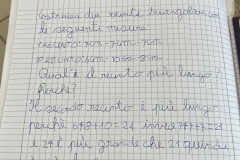 Costruisci due recinti triangolari con
le seguenti misure:
RECINTO: 7cm-7cm-7cm
RECINTO: 6cm-10cm-8cm
Qual è il recinto più lungo?
Perché?
Il secondo recinto è più lungo
perché 6+8+10=24 invece 7+7+7=21
e 24 è più grande che 21 quindi